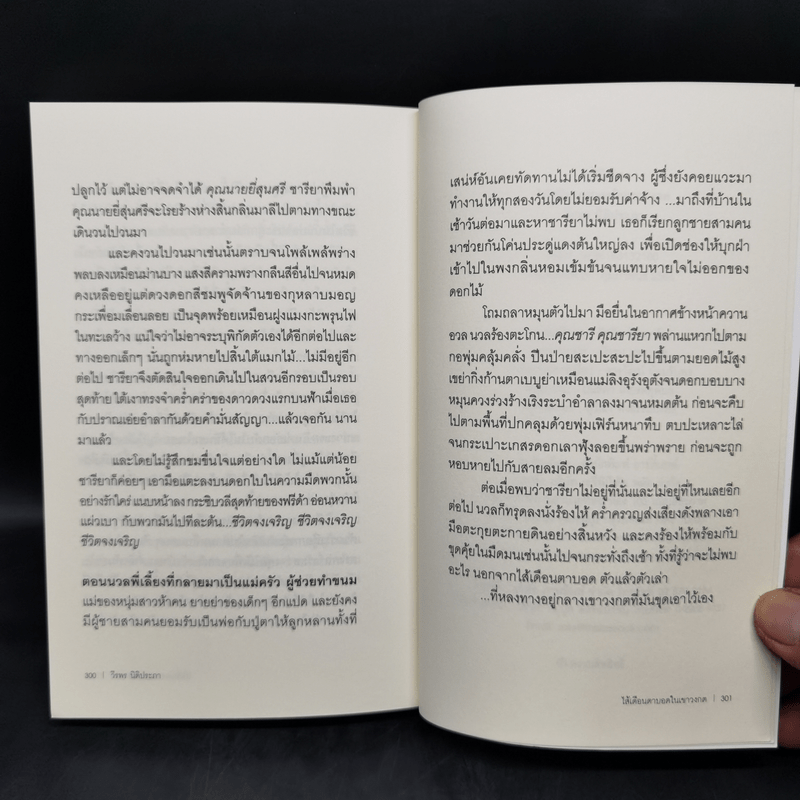 ปลูกไว้ แต่ไม่อาจจดจำได้ คุณนายยี่สุนศรี ชารียาพึมพำ
คุณนายยี่สุ่นศรีจะโรยร้างห่างสิ้นกลิ่นมาลีไปตามทางขณะ
เดินวนไปวนมา
และคงวนไปวนมาเช่นนั้นตราบจนโพล้เพล้พร่าง
พลบลงเหมือนม่านบาง แสงสีครามพรางกลืนสีอื่นไปจนหมด
คงเหลืออยู่แต่ดวงดอกสีชมพูจัดจ้านของกุหลาบมอญ
กระเพื่อมเลื่อนลอย เป็นจุดพร้อยเหมือนฝูงแมงกะพรุนไฟ
ในทะเลว้าง แน่ใจว่าไม่อาจระบุพิกัดตัวเองได้อีกต่อไปและ
ทางออกเล็กๆ นั่นถูกห่มหายไปสิ้นใต้แมกไม้...ไม่มีอยู่อีก
ต่อไป ชารียาจึงตัดสินใจออกเดินไปในสวนอีกรอบเป็นรอบ
สุดท้าย ใต้เงาทรงจำคร่ำคร่าของดาวดวงแรกบนฟ้าเมื่อเธอ
กับปราณเอ่ยอำลากันด้วยคำมั่นสัญญา...แล้วเจอกัน นาน
มาแล้ว
และโดยไม่รู้สึกขมขื่นใจแต่อย่างใด ไม่แม้แต่น้อย
ชารียาก็ค่อยๆ เอามือแตะลงบนดอกใบในความมืดพวกนั้น
อย่างรักใคร่ แนบหน้าลง กระซิบวลีสุดท้ายของฟรีด้า อ่อนหวาน
แผ่วเบา กับพวกมันไปทีละต้น...ชีวิตจงเจริญ ชีวิตจงเจริญ
ชีวิตจงเจริญ
ตอนนวลพี่เลี้ยงที่กลายมาเป็นแม่ครัว ผู้ช่วยทำขนม
แม่ของหนุ่มสาวห้าคน ยายย่าของเด็กๆ อีกแปด และยังคง
มีผู้ชายสามคนยอมรับเป็นพ่อกับปู่ตาให้ลูกหลานทั้งที่
300 | วีรพร นิติประภา
เสน่ห์อันเคยทัดทานไม่ได้เริ่มซีดจาง ผู้ซึ่งยังคอยแวะมา
ทำงานให้ทุกสองวันโดยไม่ยอมรับค่าจ้าง ...มาถึงที่บ้านใน
เช้าวันต่อมาและหาชารียาไม่พบ เธอก็เรียกลูกชายสามคน
มาช่วยกันโค่นประดู่แดงต้นใหญ่ลง เพื่อเปิดช่องให้บุกฝ่า
เข้าไปในพงกลิ่นหอมเข้มข้นจนแทบหายใจไม่ออกของ
ดอกไม้
โถมถลาหมุนตัวไปมา มือยื่นในอากาศข้างหน้าควาน
อวล นวลร้องตะโกน...คุณชารี คุณชารียา พล่านแหวกไปตาม
กอพุ่มคลุ้มคลั่ง ปีนป่ายสะเปะสะปะไปขึ้นตามยอดไม้สูง
เขย่ากิ่งก้านตาเบบูย่าเหมือนแม่ลิงอุรังอุตังจนดอกบอบบาง
หมุนควงร่วงร้างเริงระบำอำลาลงมาจนหมดต้น ก่อนจะคืบ
ไปตามพื้นที่ปกคลุมด้วยพุ่มเฟิร์นหนาทึบ ตบปะเหลาะไล่
จนกระเปาะเกสรดอกเลาฟุ้งลอยขึ้นพร่าพราย ก่อนจะถูก
หอบหายไปกับสายลมอีกครั้ง
ต่อเมื่อพบว่าชารียาไม่อยู่ที่นั่นและไม่อยู่ที่ไหนเลยอีก
ต่อไป นวลก็ทรุดลงนั่งร้องไห้ คร่ำครวญส่งเสียงดังพลางเอา
มือตะกุยตะกายดินอย่างสิ้นหวัง และคงร้องไห้พร้อมกับ
ขุดคุ้ยในมืดมนเช่นนั้นไปจนกระทั่งถึงเช้า ทั้งที่รู้ว่าจะไม่พบ
อะไร นอกจากไส้เดือนตาบอด ตัวแล้วตัวเล่า
...ที่หลงทางอยู่กลางเขาวงกตที่มันขุดเอาไว้เอง
ไส้เดือนตาบอดในเขาวงกต | 301